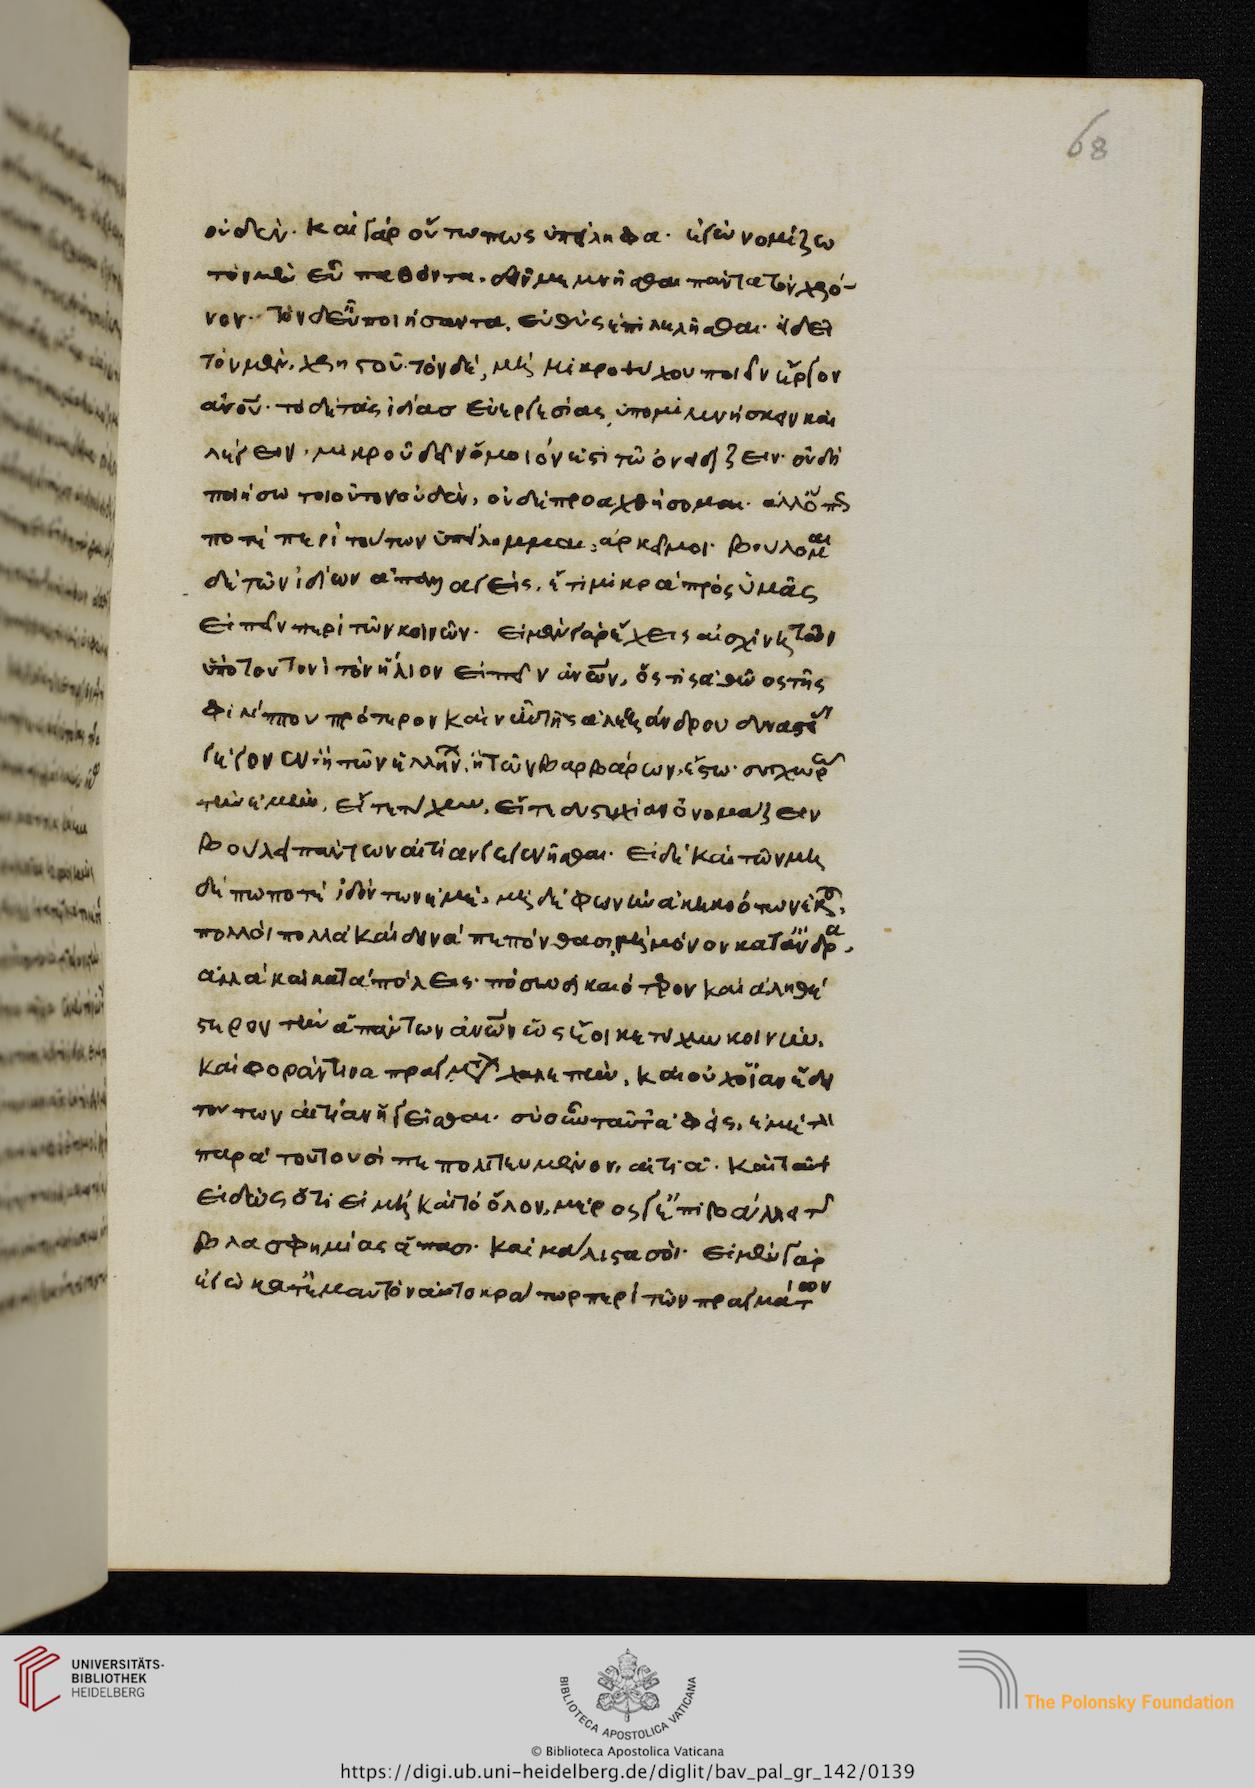 68
οὐδέν· καὶ γὰρ οὕτω πως ὑπείληφα· ἐγὼ νομίζω
τὸν μὲν εὖ παθόντα, δεῖν μεμνῆσθαι πάντα τὸν χρό-
νον· τὸν δ' εὖ ποιήσαντα, εὐθὺς ἐπιλελῆσθαι· εἰ δεῖ
τὸν μὲν, χρηστοῦ· τὸν δὲ, μὴ μικροψύχου ποιεῖν ἔργον
ἀνου· τὸ δὲ τὰς ἰδίας εὐεργεσίας ὑπομιμνήσκειν καὶ
λέγειν· μικροῦ δεῖν ὅμοιόν ἐστι τῶ ὀνειδίζειν· οὐ δὴ
ποιήσω τοιοῦτον οὐδὲν, οὐδὲ προαχθήσομαι· ἀλλ' ὅπως
ποτὲ περὶ τούτων ὑπείλημμαι, ἀρκεῖ μοι· βούλομαι
δὲ τῶν ἰδίων ἀπαλλαγεὶς, ἔτι μικρὰ πρὸς ὑμᾶς
εἰπεῖν περὶ τῶν κοινῶν· εἰ μὲν γὰρ ἔχεις αἰσχίνη τῶν
ὑπὸ τουτονὶ τὸν ἥλιον εἰπεῖν ἀνων, ὅστις ἀθῶος τῆς
φιλίππου πρότερον καὶ νῦν τῆς ἀλεξάνδρου δυναστείας
γέγονεν ἢ τῶν ἑλλήνων, ἢ τῶν βαρβάρων, ἔστω· συγχωρῶ
τὴν ἐμὴν, εἴτε τύχην, εἴτε δυστυχίαν ὀνομάζειν
βούλει πάντων αἰτίαν γεγενῆσθαι· εἰ δὲ καὶ τῶν μη
δὲ πώποτε ἰδόντων ἐμὲ, μηδὲ φωνὴν ἀκηκοότων ἐμοῦ,
πολλοὶ πολλὰ καὶ δεινὰ πεπόνθασι, μὴ μόνον κατ' ἄνδρα,
ἀλλὰ καὶ κατὰ πόλεις· πόσω δικαιότερον καὶ ἀληθέ
στερον τὴν ἁπάντων ἀνων ὡς ἔοικε τύχην κοινὴν,
καὶ φοράν τινα πραγμάτων χαλεπὴν, καὶ οὐχ οἵαν ἔδει
τούτων αἰτίαν ἡγεῖσθαι· σὺ σωταῦτ' ἀφεὶς, ἐμὲ τὸν
παρὰ τουτουσὶ πεπολιτευμένον, αἰτιᾶ· καὶ ταῦτ'
εἰδὼς ὅτι εἰ μὴ καὶ τὸ ὅλον, μέρος γ' ἐπιβάλλει τῆς
βλασφημίας ἅπασι· καὶ μάλιστα σοί· εἰ μὲν γὰρ
ἐγὼ κατ' ἐμαυτὸν αὐτοκράτωρ περὶ τῶν πραγμάτων
UNIVERSITÄTS-
BIBLIOTHEK
HEIDELBERG
BIBLIOTECA APOSTOLICA VATICANA
The Polonsky Foundation
© Biblioteca Apostolica Vaticana
https://digi.ub.uni-heidelberg.de/diglit/bav_pal_gr_142/0139